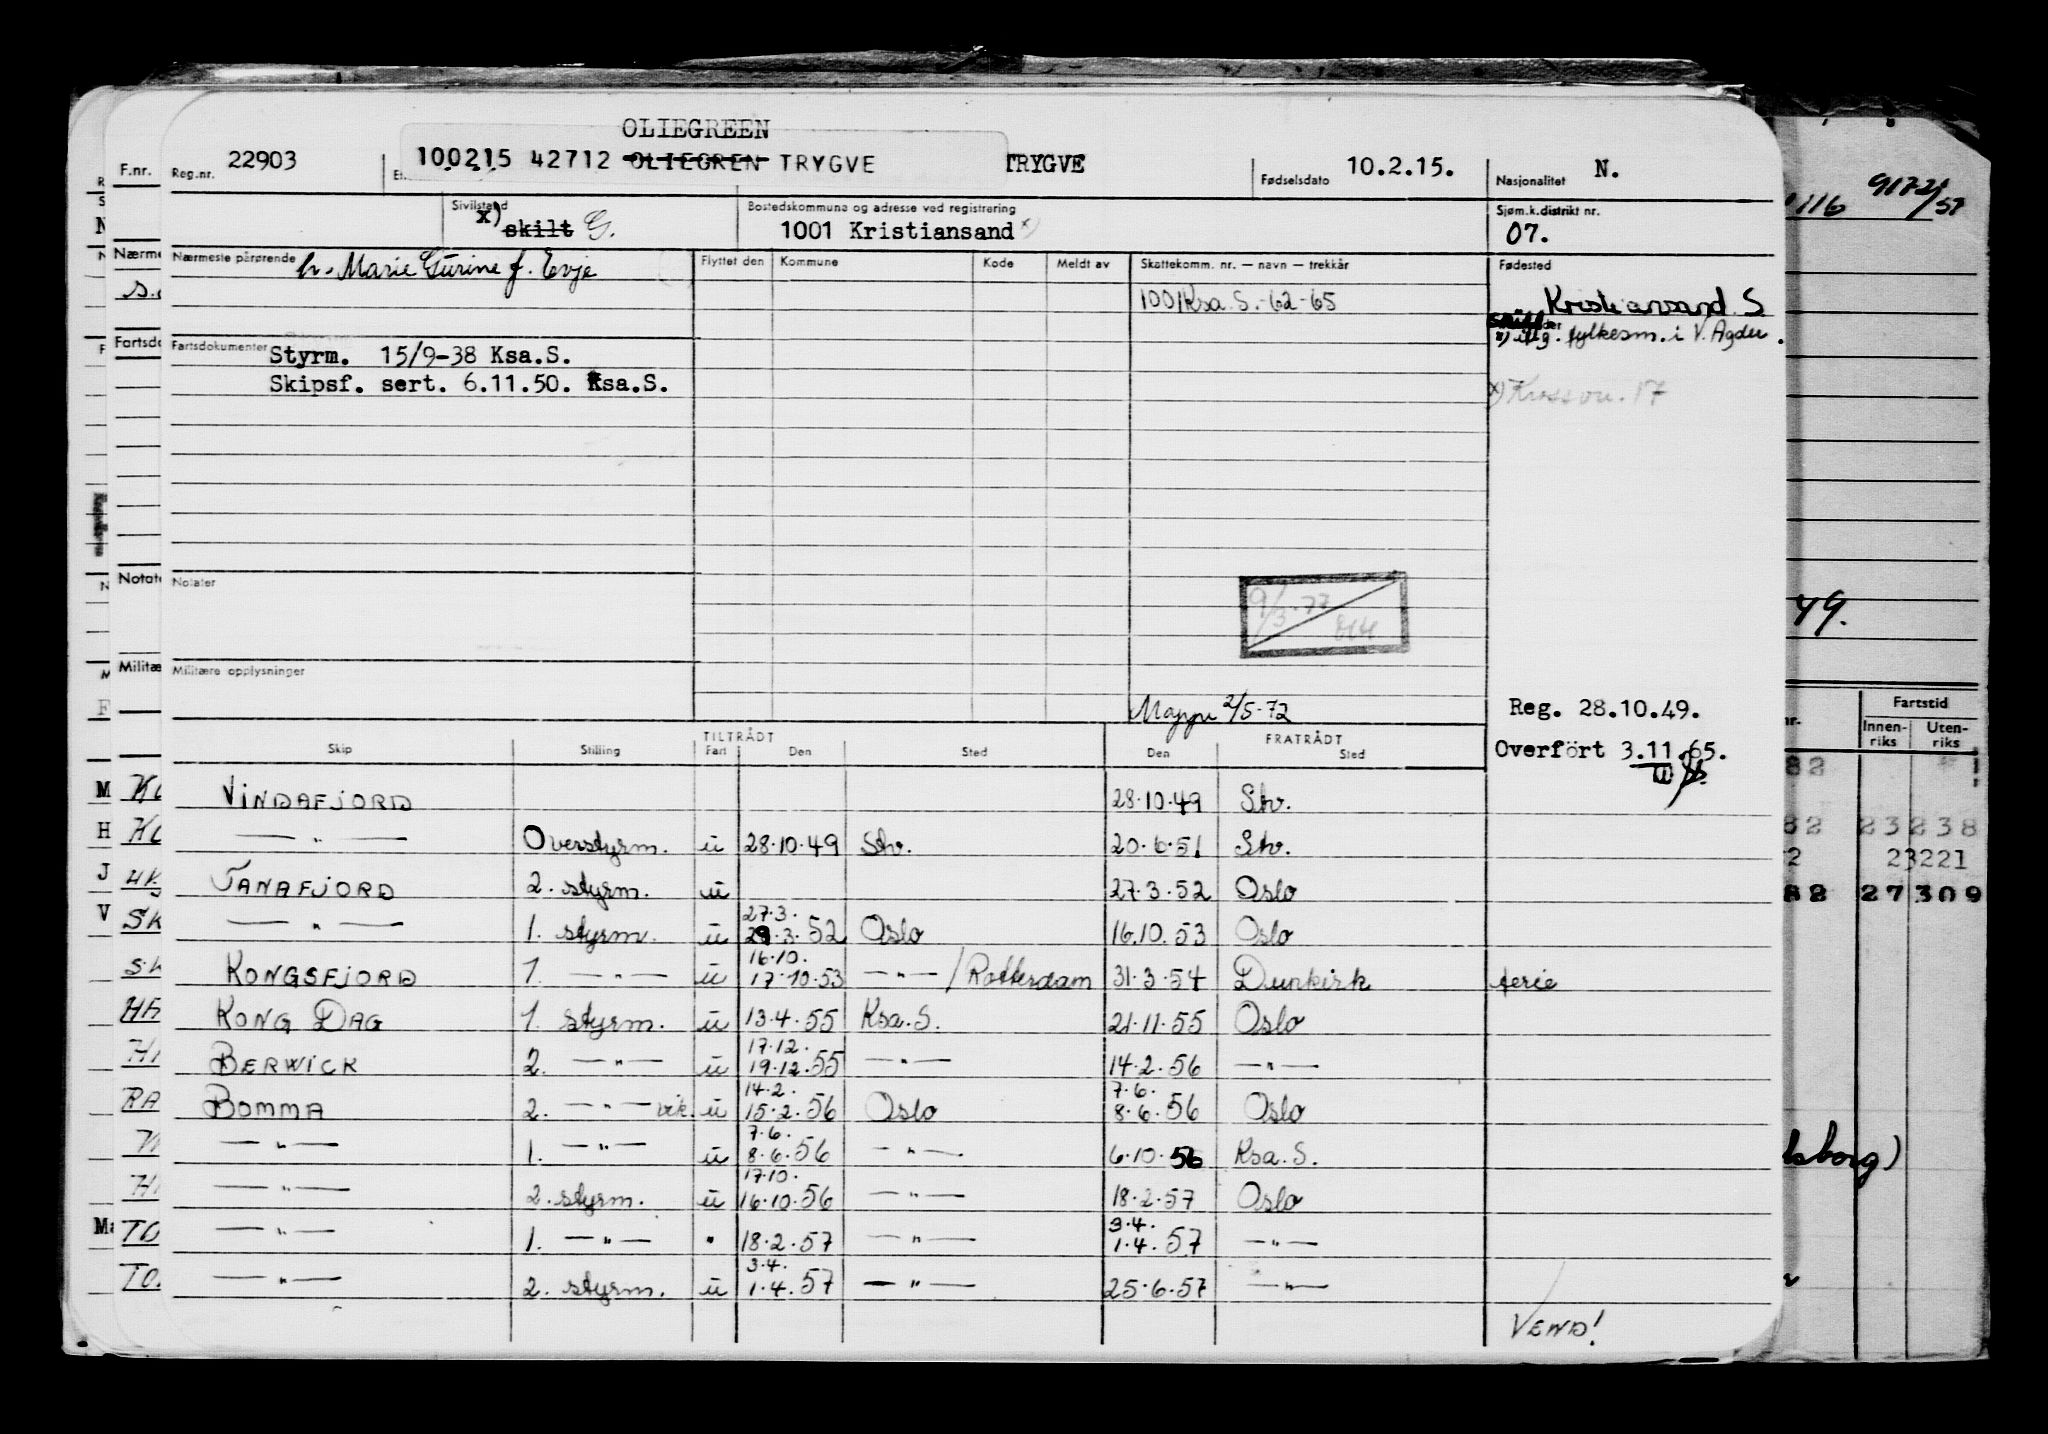 OLIEGREEN
F.nr. Reg.nr. 22903 100215 42712 OLIEGREN TRYGVE TRYGVE Fødselsdato 10.2.15. Nasjonalitet N.
Sivilstand x) skilt G. Bostedskommune og adresse ved registrering 1001 Kristiansand x) Sjøm.k.distrikt nr. 07.
9172/57
116
Nærmeste pårørende h. Marie Gurine f. Evje Flyttet den Kommune Kode Meldt av Skattekomm. nr. — navn — trekkår Fødested
1001 Ksa. S. -62-65 Kristiansand. S
fylkesm. i V. Agder.
Fartsdokumenter Styrm. 15/9-38 Ksa.S.
Skipsf. sert. 6.11.50. Ksa.S.
x) Krossen. 17
Notater
9/3-77
49.
Militære opplysninger
Mappe 2/5-72 Reg. 28.10.49.
Overført 3.11.65.
TILTRÅDT FRATRÅDT
Skip Stilling Fart Den Sted Den Sted
Fartstid
Innenriks Utenriks
VINDAFJORD 28.10.49 Stv.
— " — Overstyrm. u 28.10.49 Stv. 20.6.51 Stv.
TANAFJORD 2. styrm. u 27.3.52 Oslo
— " — 1. styrm. u 27.3. 29.3.52 Oslo 16.10.53 Oslo
KONGSFJORD 1. — " — u 16.10. 17.10.53 — " — / Rotterdam 31.3.54 Dunkirk ferie
KONG DAG 1. styrm. u 13.4.55 Ksa. S. 21.11.55 Oslo
BERWICK 2. — " — u 17.12. 19.12.55 — " — 14.2.56 — " —
BOMMA 2. — " — vik. u 14.2. 15.2.56 Oslo 7.6. 8.6.56 Oslo
— " — 1. — " — u 7.6. 8.6.56 — " — 6.10.56 Ksa. S.
— " — 2. styrm. u 17.10. 16.10.56 — " — 18.2.57 Oslo
— " — 1. — " — " 18.2.57 — " — 3.4. 1.4.57 — " —
— " — 2. styrm. u 3.4. 1.4.57 — " — 25.6.57 — " —
VEND!
82
82 23238
2 23221
82 27309